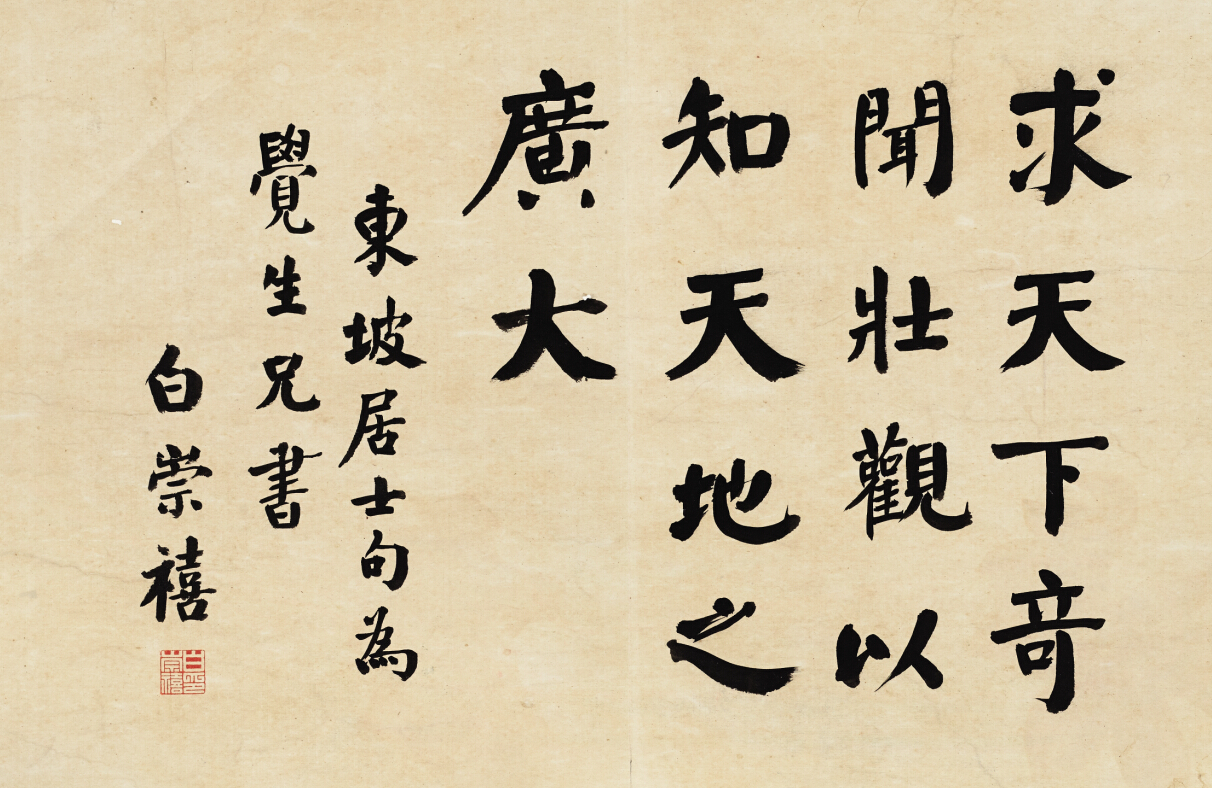 求天下奇
聞壯觀以
知天地之
廣大
東坡居士句為
覺生兄書
白崇禧